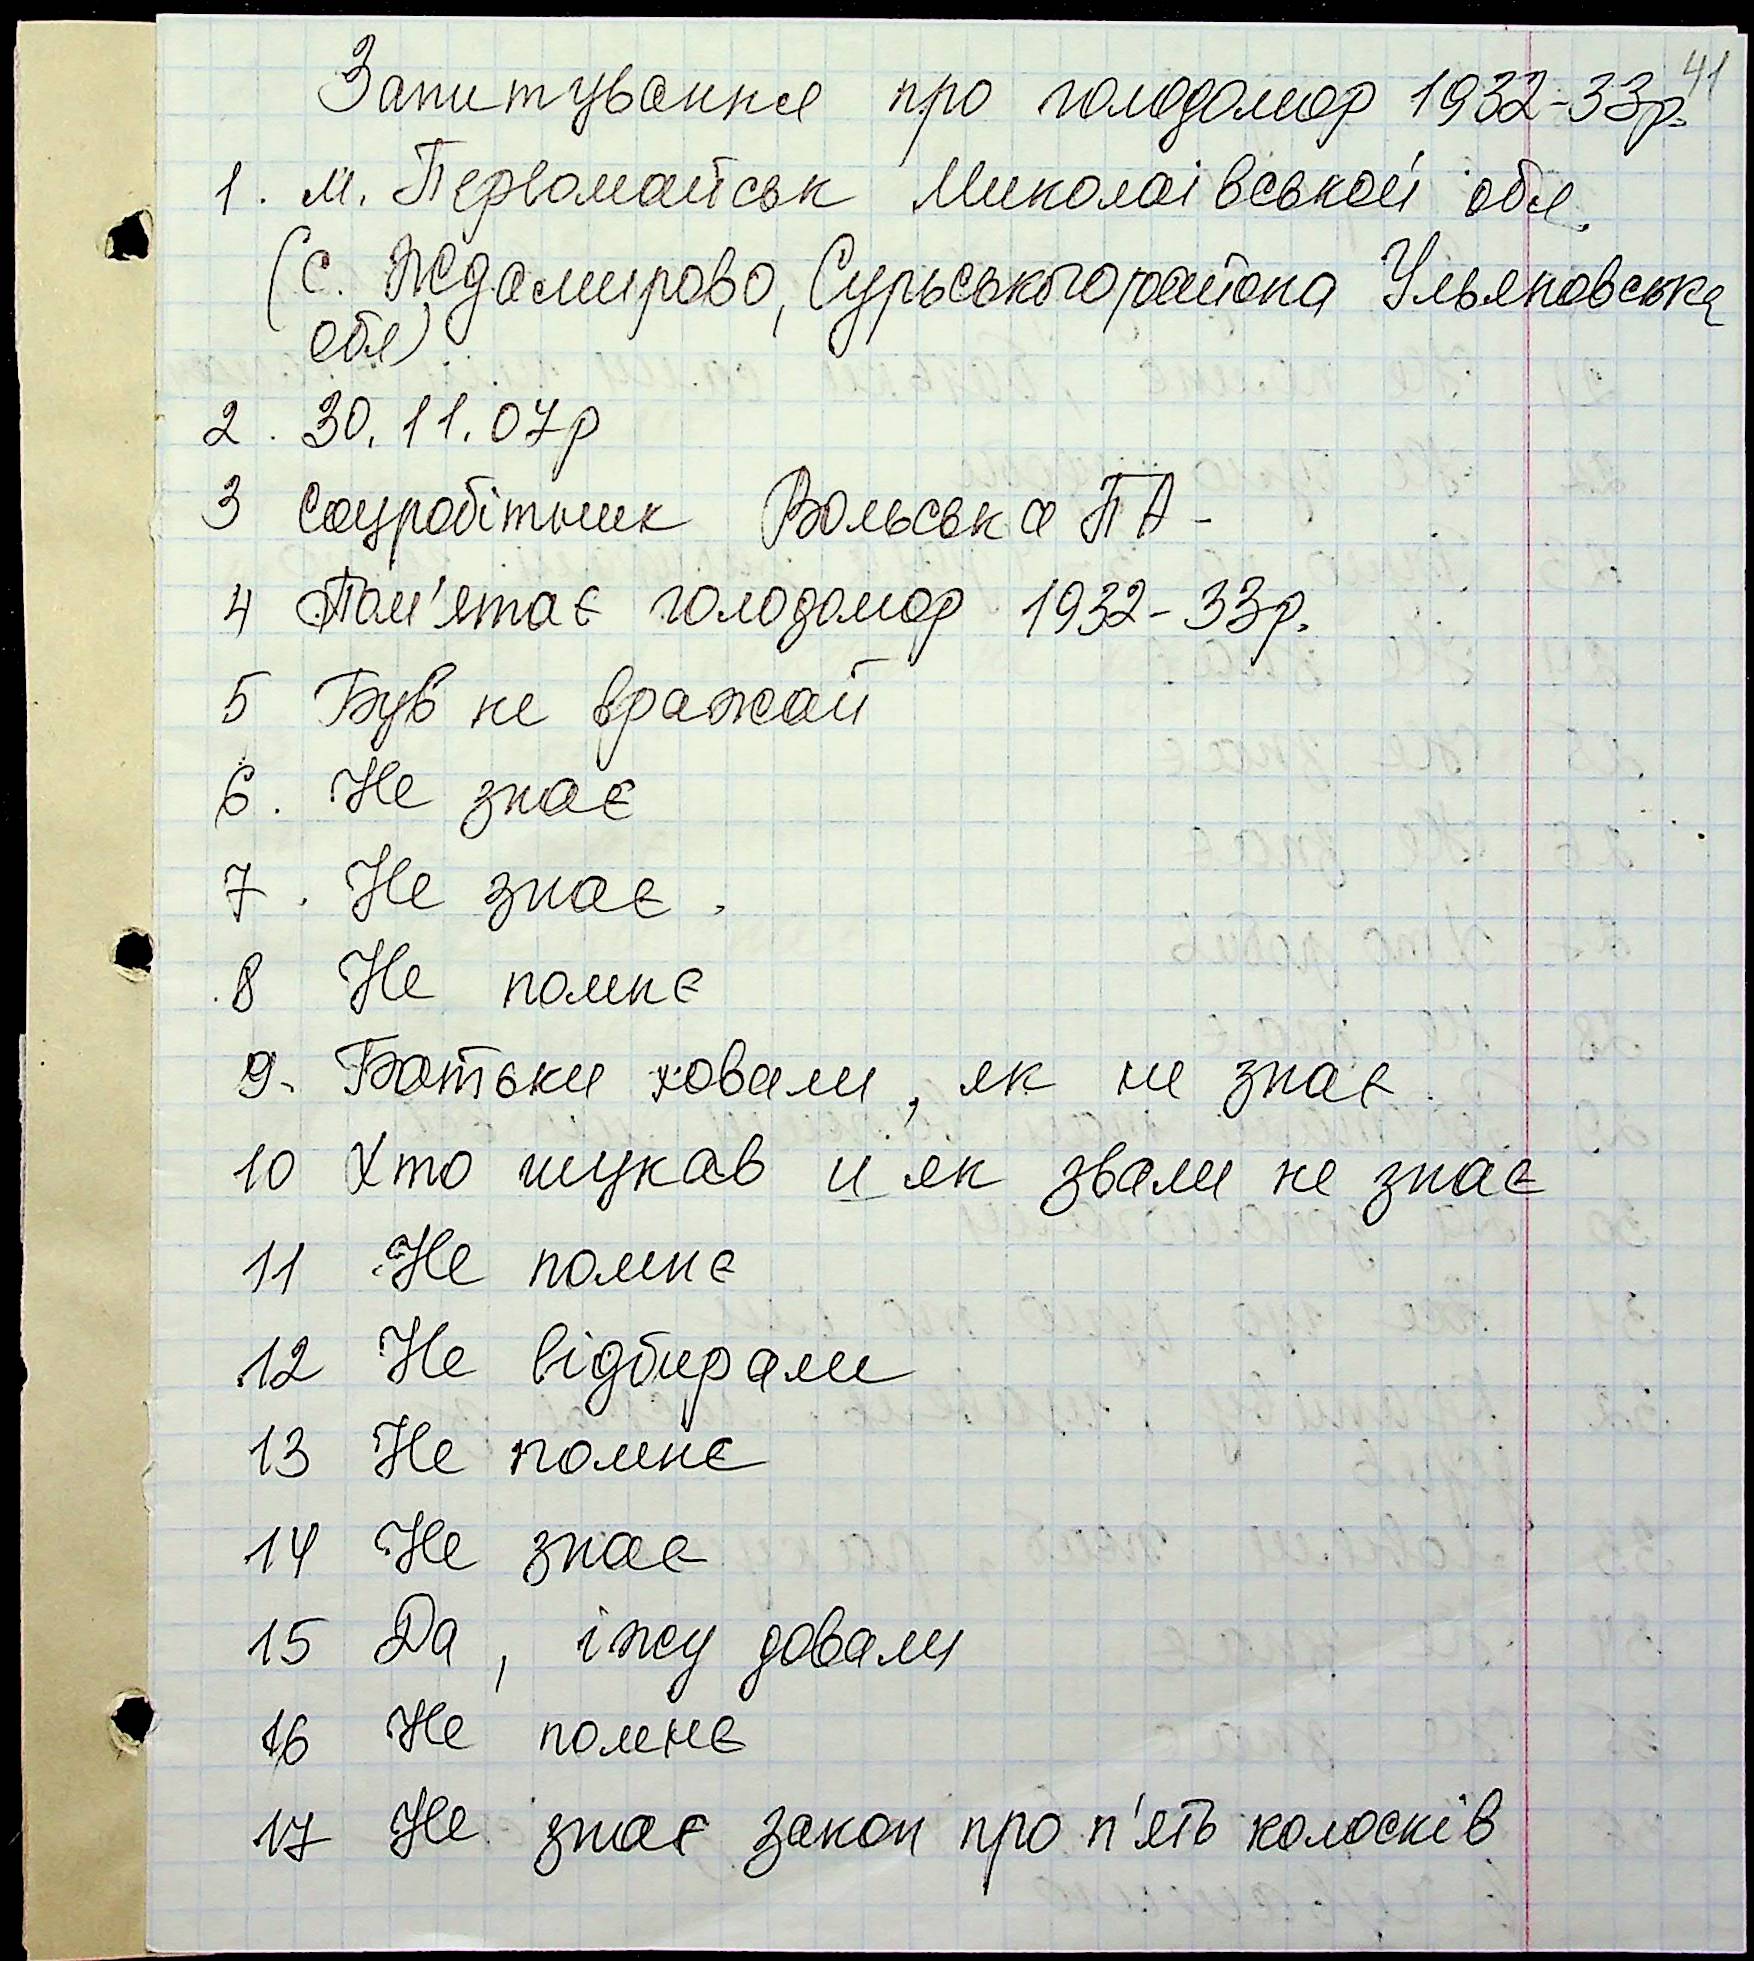 41
Запитування про голодомор 1932-33р.
1. м. Первомайськ Миколаівськой обл.
(с. Ждамирово, Сурьського района Ульяновська
обл)
2. 30.11.07р
3 Соцробітник Вольська ПА-
4 Пам'ятає голодомор 1932-33р.
5 Був не вражай
6. Не знає
7. Не знає.
8 Не помнє
9. Батьки ховали, як не знає.
10 Хто шукав и як звали не знає
11 Не помнє
12 Не відбирали
13 Не помнє
14 Не знає
15 Да, іжу довали
16 Не помнє
17 Не знає закон про п'ять колосків